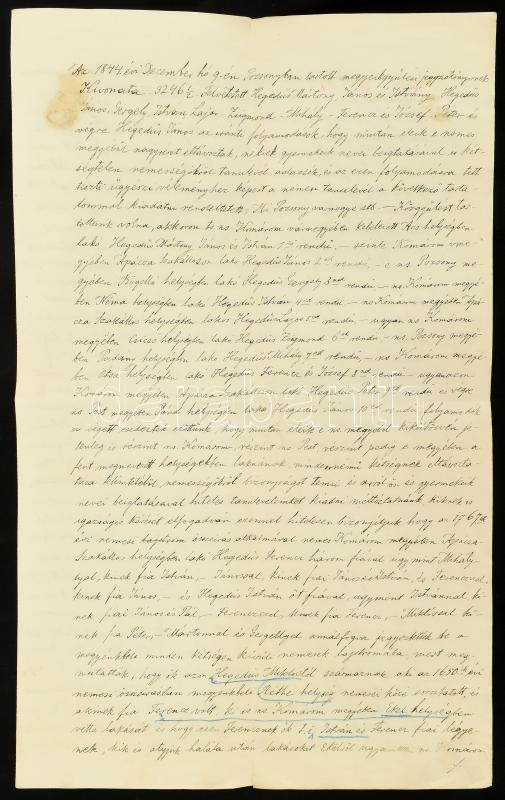 Az 1844. évi December hó 9-én Pozsonyban tartott megyegyűlési jegyzőkönyvnek
Kivonata 3246 Hegedüs Mártony János és István, Hegedüs
János, Gergely, István, Lajos, Zsigmond, Mihály, Ferencz és József, Péter és
végre Hegedüs János az iránti folyamodások, hogy miután eleik e nemes
megyéből nagyrészt eltávoztak, nékiek gyermekeik nevei beigtatásával is két-
ségtelen nemességökről tanulevél adassék, és az ezen folyamodásra tett
tiszti ügyészi véleményhez képest a nemesi tanulevél a következő tarta-
lommal kiadatni rendeltetett: Mi Pozsony vármegye stb. – Közgyülést tar-
tottunk volna, akkoron ts ns Komárom vármegyében helységben
lakó Hegedüs Mártony János és István 1ső rendü, – szinte Komárom vme-
gyében Apácza Szakálloson lakó Hegedüs János 2od rendü, – e ns Pozsony me-
gyében helységben lakó Hegedüs Gergely 3ad rendü – ns Komárom megyé-
ben Néma helységben lakó Hegedüs István 4ed rendü – ns Komárom megyében Apá-
cza Szakállos helységben lakó Hegedüs Lajos 5ed rendü, – ugyan ns Komárom
megyében helységben lakó Hegedüs Zsigmond 6od rendü, – ns Pozsony megyé-
ben helységben lakó Hegedüs Mihály 7ed rendü, – ns Komárom megyé-
ben Ekel helységben lakó Hegedüs Ferencz és József 8ad rendü – ugyanazon
Komárom megyében Apácza Szakálloson lakó Hegedüs Péter 9ed rendü és végre
ns Pest megyében helységben lakó Hegedüs János rendü folyamodók
a végett esedeztek előttünk, hogy miután eleik e ns megyéből kiköltözvén je-
lenleg is részint ns Komárom, részint ns Pest, részint pedig e megyében a
fent megnevezett helységekben laknának, mindennemü kétségnek eltávozta-
tása tekintetéből, nemességökről bizonyságot tenni és arról ön és gyermekeik
nevei beigtatásával hiteles tanulevelünket kiadni méltóztatnánk, kiknek is
igazságos kérését elfogadván ezennel hitelesen bizonyítjuk hogy az 1767ik
évi nemesi összeírás alkalmával nemes Komárom megyében Apácza-
Szakállos helységben lakó Hegedüs Ferencz három fiával ugymint Mihály-
lyal, kinek fia István, – Jánossal, kinek fiai János és István, és Ferenczcel,
kinek fia János, – és Hegedüs István öt fiával, ugymint Istvánnal ki-
nek fiai János és Pál, – Ferenczcel, kinek fia Ferencz, – Miklóssal ki-
nek fia Péter, – Mártonnal és Gergellyel ámalfogva jegyeztettek be a
megyénkbeli minden kétségen kívüli nemesek lajstromába, mert meg-
mutatták, hogy ők azon Hegedüs Miklóstól származnak, aki az 1650ik évi
nemesi összeírásban megyénkbeli Réthe helység nemesei közé soroztatott, és
akinek fia Ferencz volt, ki is ns Komárom megyében Ekel helységben
vette lakását és hogy ezen Ferencznek ők t. i. István és Ferencz fiai légye-
nek, kik is atyjuk halála után lakásokat Ekelről ugyan azon ns Komárom